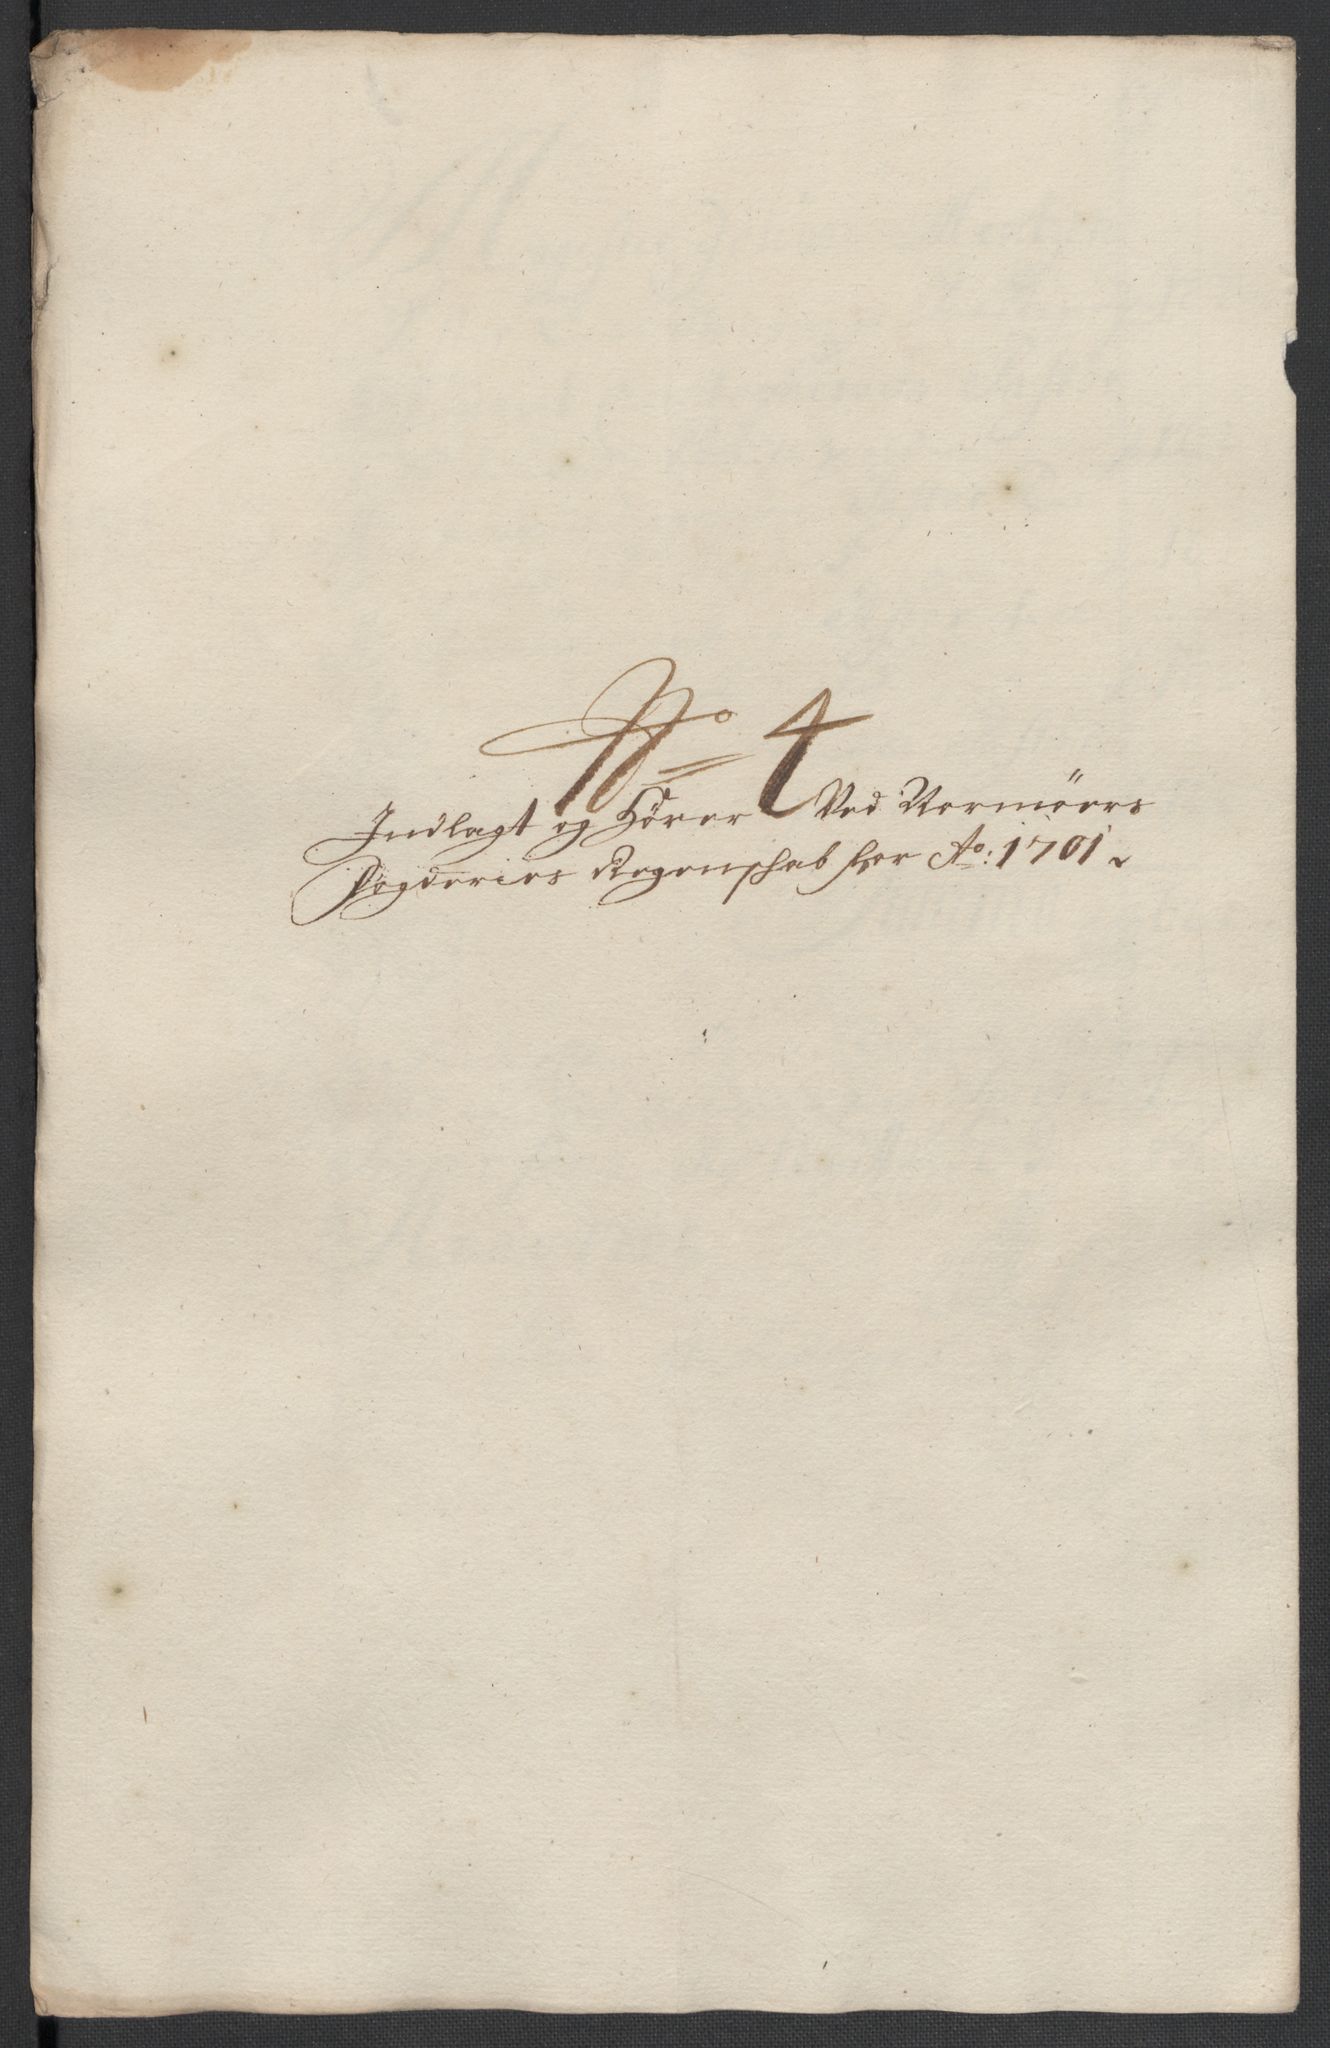 No 4
Indlagt og Hörer Ved Normöers
Fogderies Regenschab for Ao: 1701